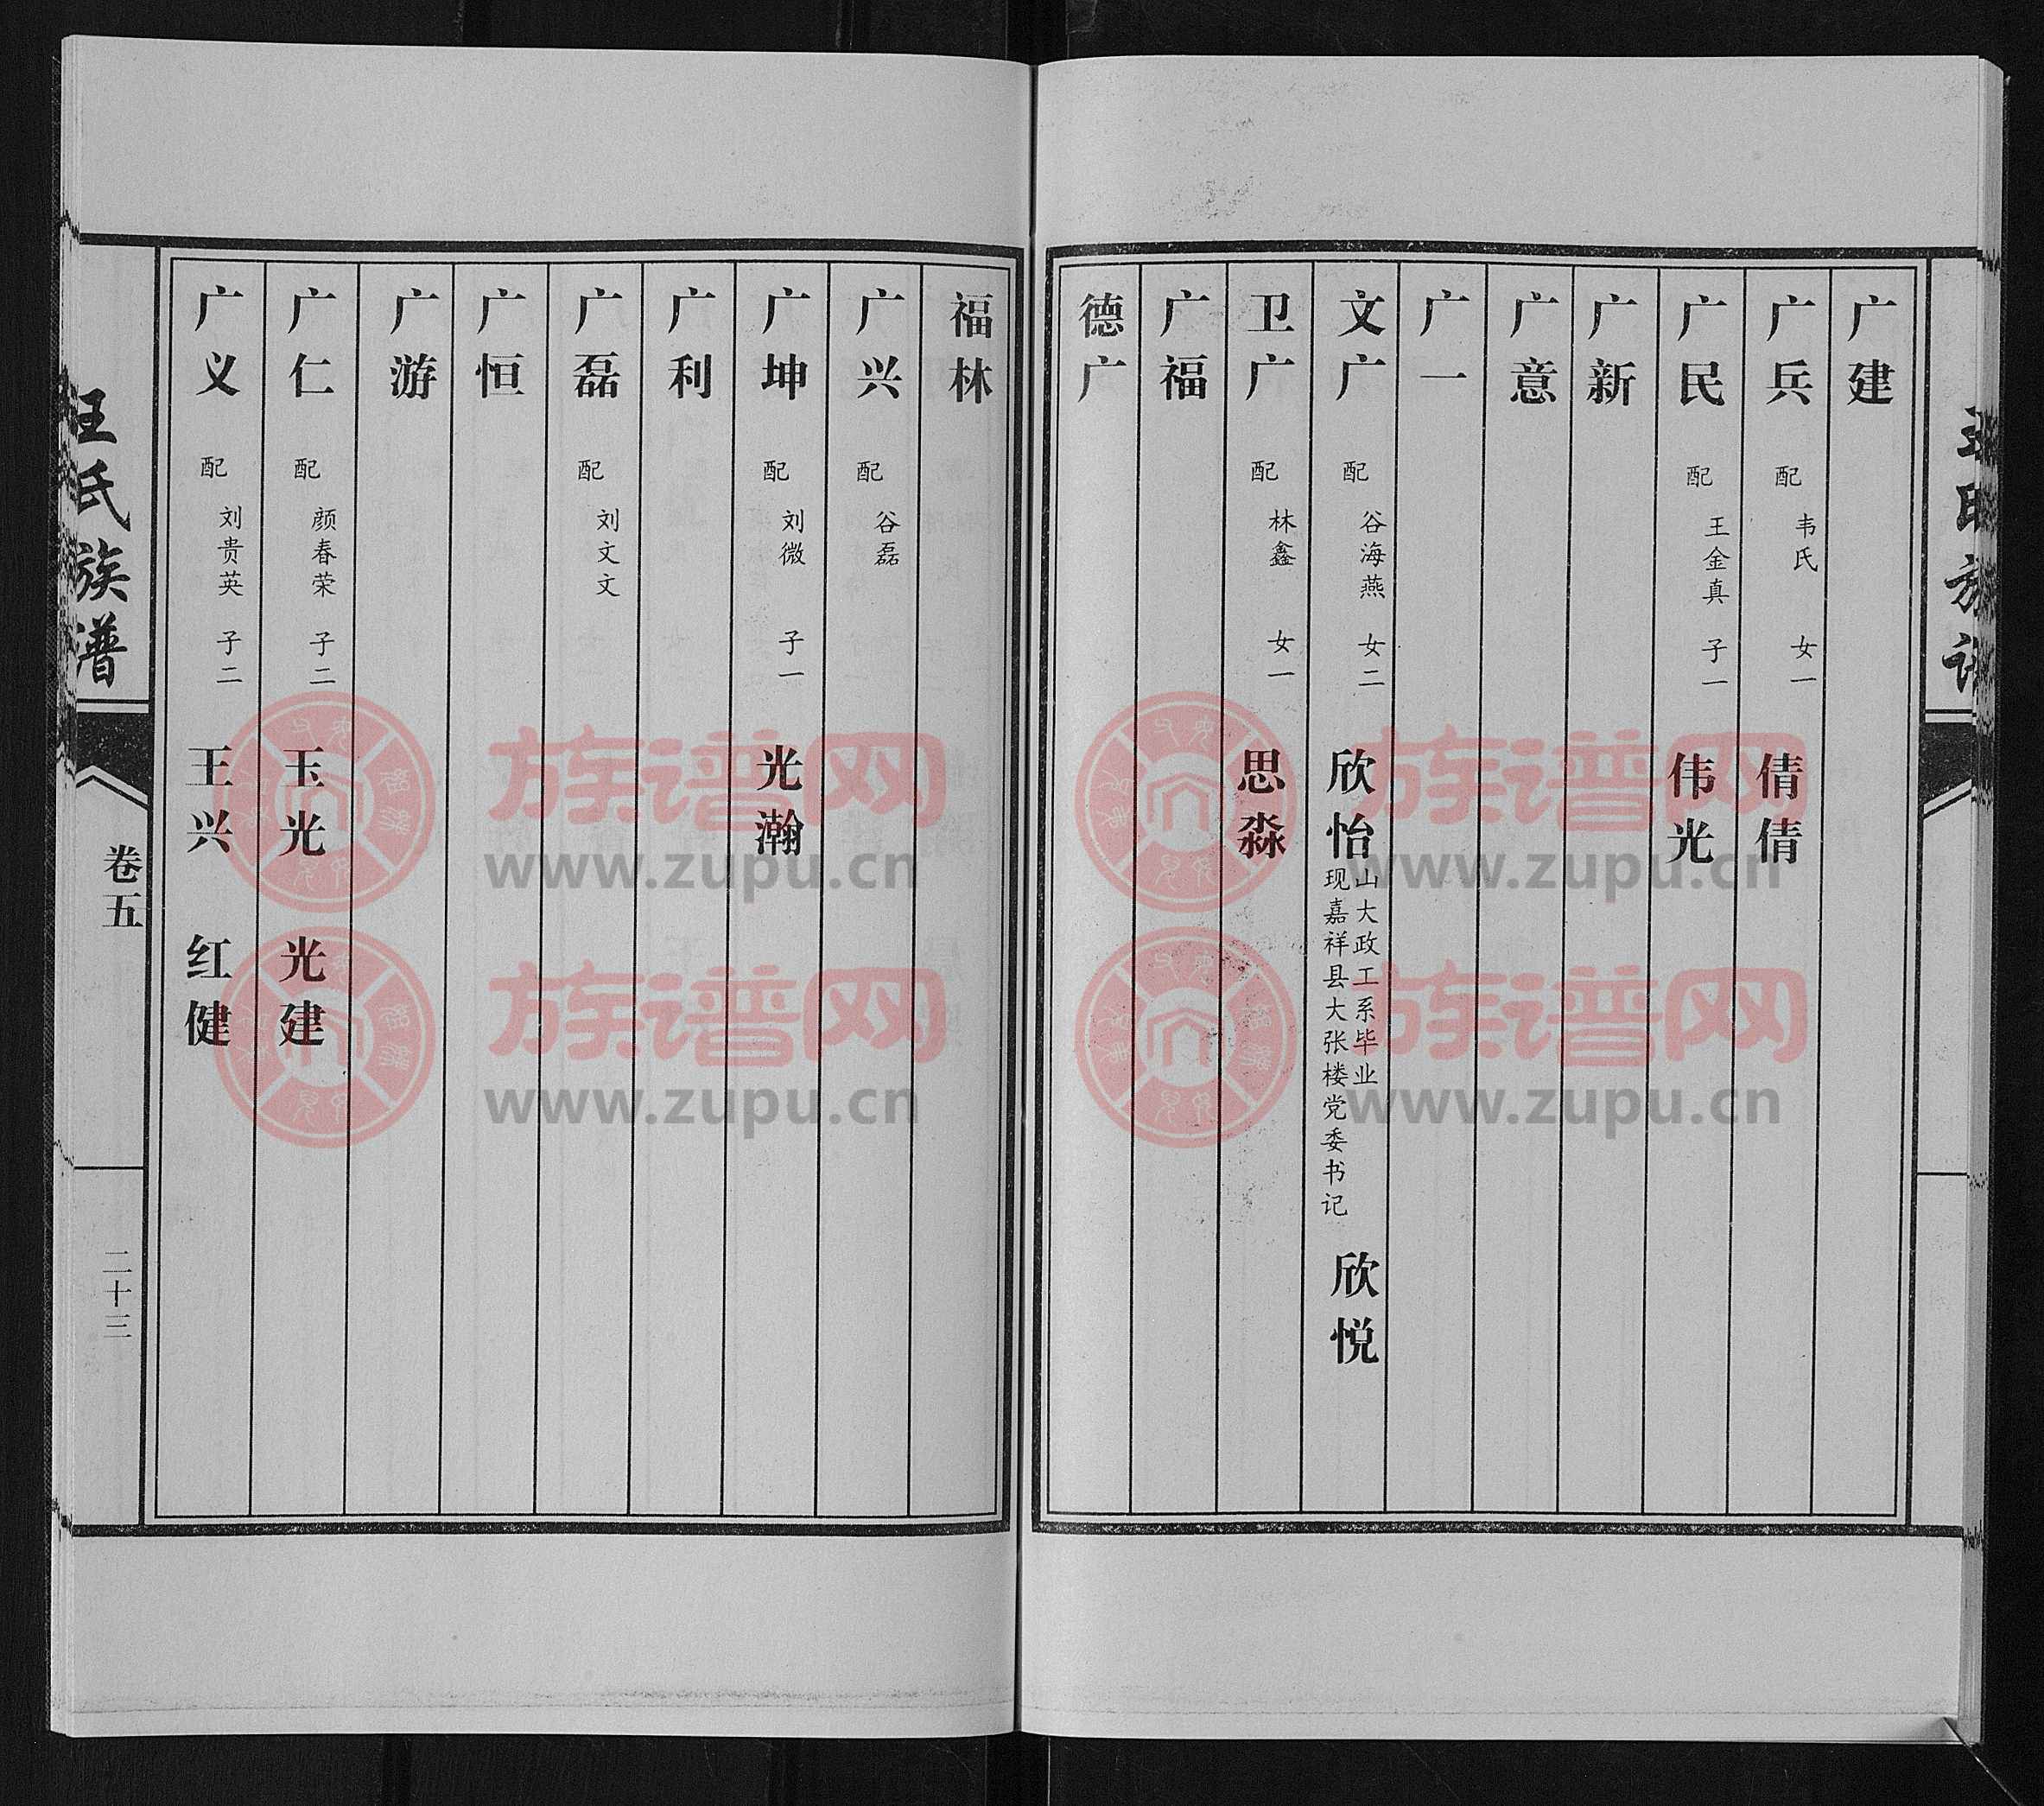 王氏族谱
广建
广兵 配 韦氏 女一 倩倩
广民 配 王金真 子一 伟光
广新
广意
广一
文广 配 谷海燕 女二 欣怡 山大政工系毕业
现嘉祥县大张楼党委书记 欣悦
卫广 配 林鑫 女一 思淼
广福
德广
福林
广兴 配 谷磊
广坤 配 刘微 子一 光瀚
广利
广磊 配 刘文文
广恒
广游
广仁 配 颜春荣 子二 玉光 光建
广义 配 刘贵英 子二 王兴 红健
王氏族谱
卷五
二十三
族谱网
www.zupu.cn
族谱网
www.zupu.cn
族谱网
www.zupu.cn
族谱网
www.zupu.cn